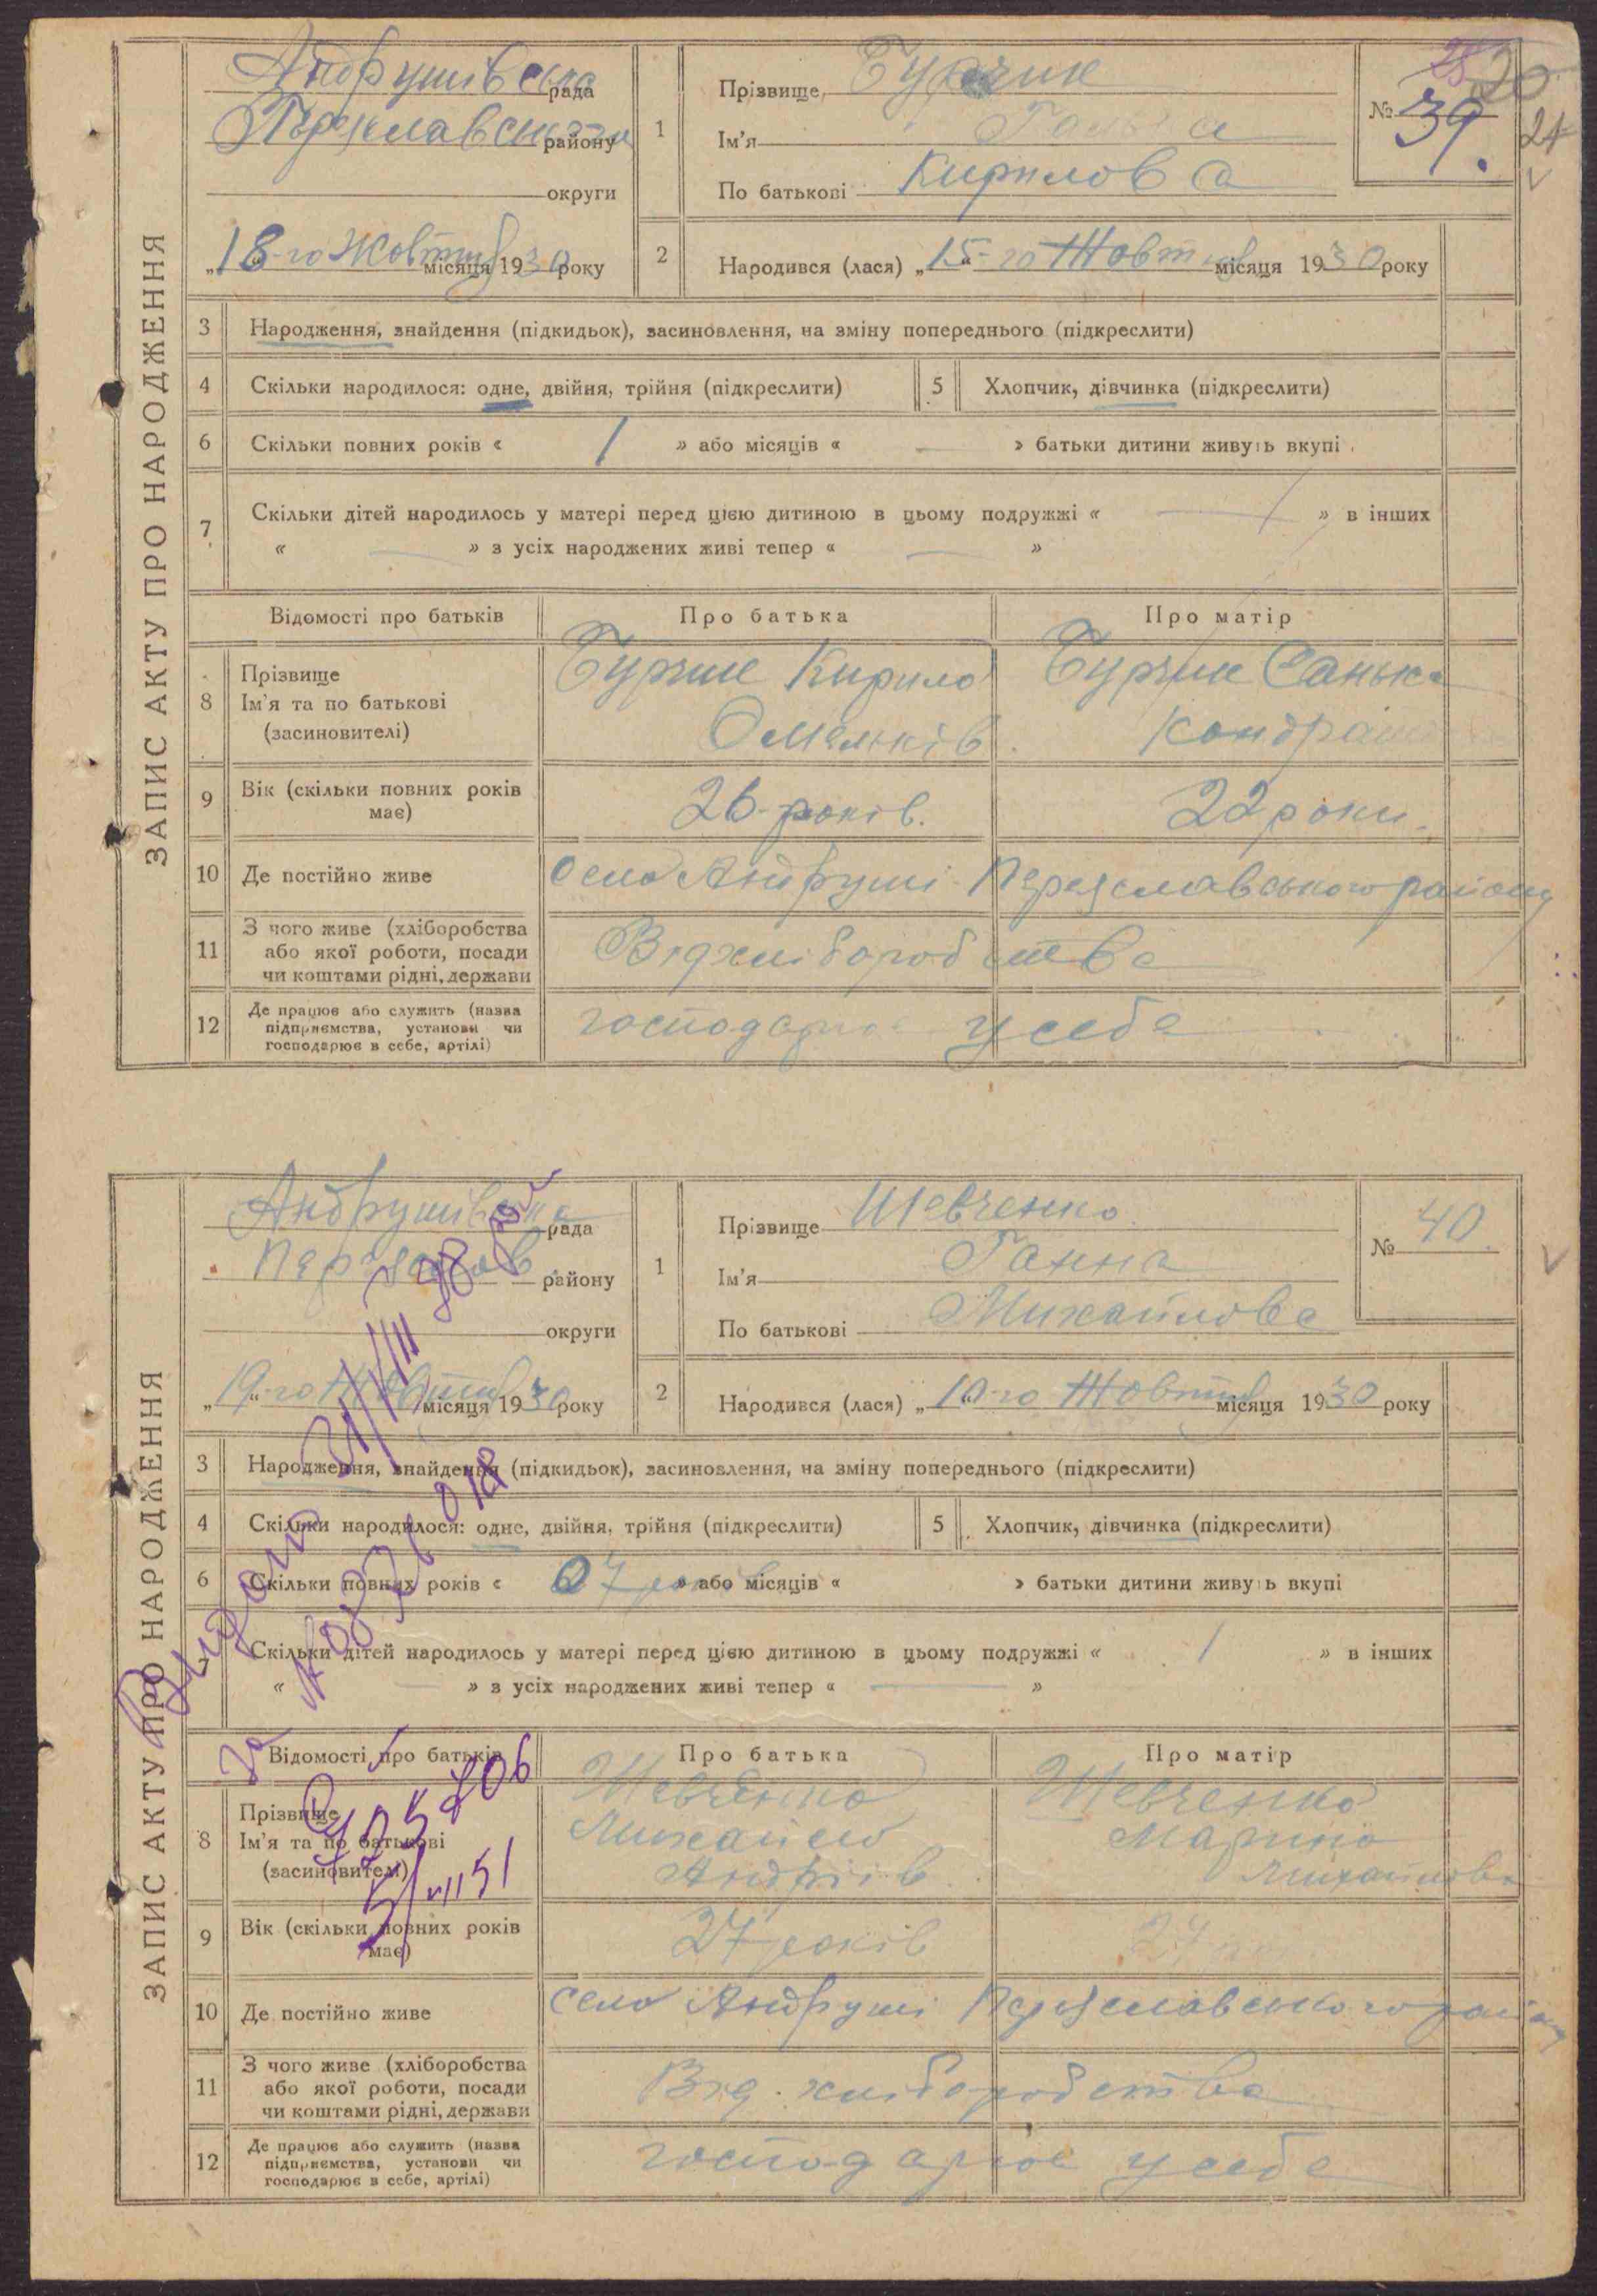 ЗАПИС АКТУ ПРО НАРОДЖЕННЯ
Андрушівська рада
Переяславського району
округи
„18-го Жовтня місяця 1930 року
1
Прізвище Гурчик
Ім'я
По батькові Кирилова
№ 39.
21
2
Народився (лася) „15-го Жовтня місяця 1930 року
3 Народження, знайдення (підкидьок), засиновлення, на зміну попереднього (підкреслити)
4 Скільки народилося: одне, двійня, трійня (підкреслити)
5 Хлопчик, дівчинка (підкреслити)
6 Скільки повних років « 1 » або місяців « — » батьки дитини живуть вкупі
7 Скільки дітей народилось у матері перед цією дитиною в цьому подружжі « — » в інших
« — » з усіх народжених живі тепер « — »
Відомості про батьків Про батька Про матір
8 Прізвище
Ім'я та по батькові
(засиновителі)
Гурчик Кирило
Омельків.
Гурчик Санька
9 Вік (скільки повних років
має)
26 років.
22 роки.
10 Де постійно живе село Андруші Переяславського району
11 З чого живе (хліборобства
або якої роботи, посади
чи коштами рідні, держави
Від хліборобства
12 Де працює або служить (назва
підприємства, установи чи
господарює в себе, артілі)
господарює у себе
ЗАПИС АКТУ ПРО НАРОДЖЕННЯ
Андрушівська рада
Переяслав. району
округи
„19-го Жовтня місяця 1930 року
1
Прізвище Шевченко
Ім'я Ганна
По батькові Михайлова
№ 40.
2
Народився (лася) „10-го Жовтня місяця 1930 року
3 Народження, знайдення (підкидьок), засиновлення, на зміну попереднього (підкреслити)
4 Скільки народилося: одне, двійня, трійня (підкреслити)
5 Хлопчик, дівчинка (підкреслити)
6 Скільки повних років « » або місяців « » батьки дитини живуть вкупі
Скільки дітей народилось у матері перед цією дитиною в цьому подружжі « 1 » в інших
« — » з усіх народжених живі тепер « — »
Відомості про батьків Про батька Про матір
8 Прізвище
Ім'я та по батькові
(засиновителі)
Шевченко
Михайло
Андріїв
Шевченко
Марина
Михайлова
9 Вік (скільки повних років
має)
27 років
10 Де постійно живе село Андруші Переяславського району
11 З чого живе (хліборобства
або якої роботи, посади
чи коштами рідні, держави
Від хліборобства
12 Де працює або служить (назва
підприємства, установи чи
господарює в себе, артілі)
господарює у себе